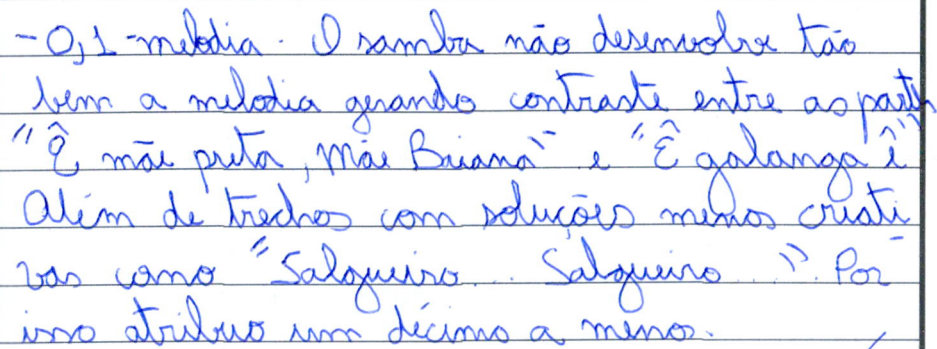 -0,1 - melodia. O samba não desenvolve tão
bem a melodia gerando contraste entre as partes
"Ê mãe preta, Mãe Baiana" e "Ê galanga ê"
Além de trechos com soluções menos criati
vas como "Salgueiro... Salgueiro..." Por
isso atribuo um décimo a menos.